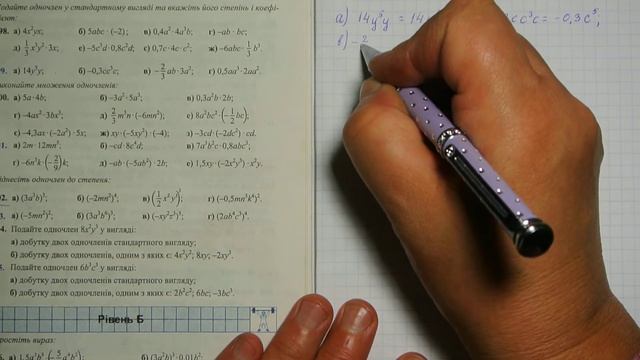 одайте одночлен у стандартному вигляді та вкажіть його степінь і коефі-
єнт:
98. а) 4x²yx; б) 5abc · (-2); в) 0,4a² · 4a³b; г) -ab · bc;
д) 1/3 x³y² · 3x; е) -5c³d · 0,8c²d; є) 0,7c · 4c · c²; ж) -6abc · 1/3 b³.
99. а) 14y⁵y; б) -0,3cc³c; в) -2/3 ab · 3a²; г) 0,5aa³ · 2aa².
иконайте множення одночленів:
00. а) 5a · 4b; б) -3a² · 5a³; в) 0,3a²b · 2b;
г) -4ax² · 3bx³; д) 2/3 m³n · (-6mn²); е) 8a²bc³ · (-1/2 bc);
є) -4,3ax · (-2a²) · 5x; ж) xy · (-5xy²) · (-4); з) -3cd · (-2dc²) · cd.
1. а) 2m · 12mn⁵; б) -cd · 8c⁴d; в) 7a³b²c · 0,8abc³;
г) -6n⁶k · (-2/9)k; д) -ab · (-5ab²) · 2b; е) 1,5xy · (-2x²y³) · x²y.
днесіть одночлен до степеня:
02. а) (3a³b)³; б) (-2mn³)⁴; в) (1/2 x⁴y)²; г) (-0,5mn³k⁶)².
3. а) (-5mn²)²; б) (3a³b⁶)³; в) (-xy²z³)⁵; г) (2ab⁴c³)⁴.
4. Подайте одночлен 8x²y³ у вигляді:
а) добутку двох одночленів стандартного вигляду;
б) добутку двох одночленів, одним з яких є: 4x²y²; 8xy; -2xy³.
Подайте одночлен 6b³c³ у вигляді:
а) добутку двох одночленів стандартного вигляду;
б) добутку двох одночленів, одним з яких є: 2b²c²; 6bc; -3bc³.
Рівень Б
ростіть вираз:
б) (3a²b)³ · 0,01b²
а) 14y⁵y = 14 cc³c = -0,3c⁵;
в) -2